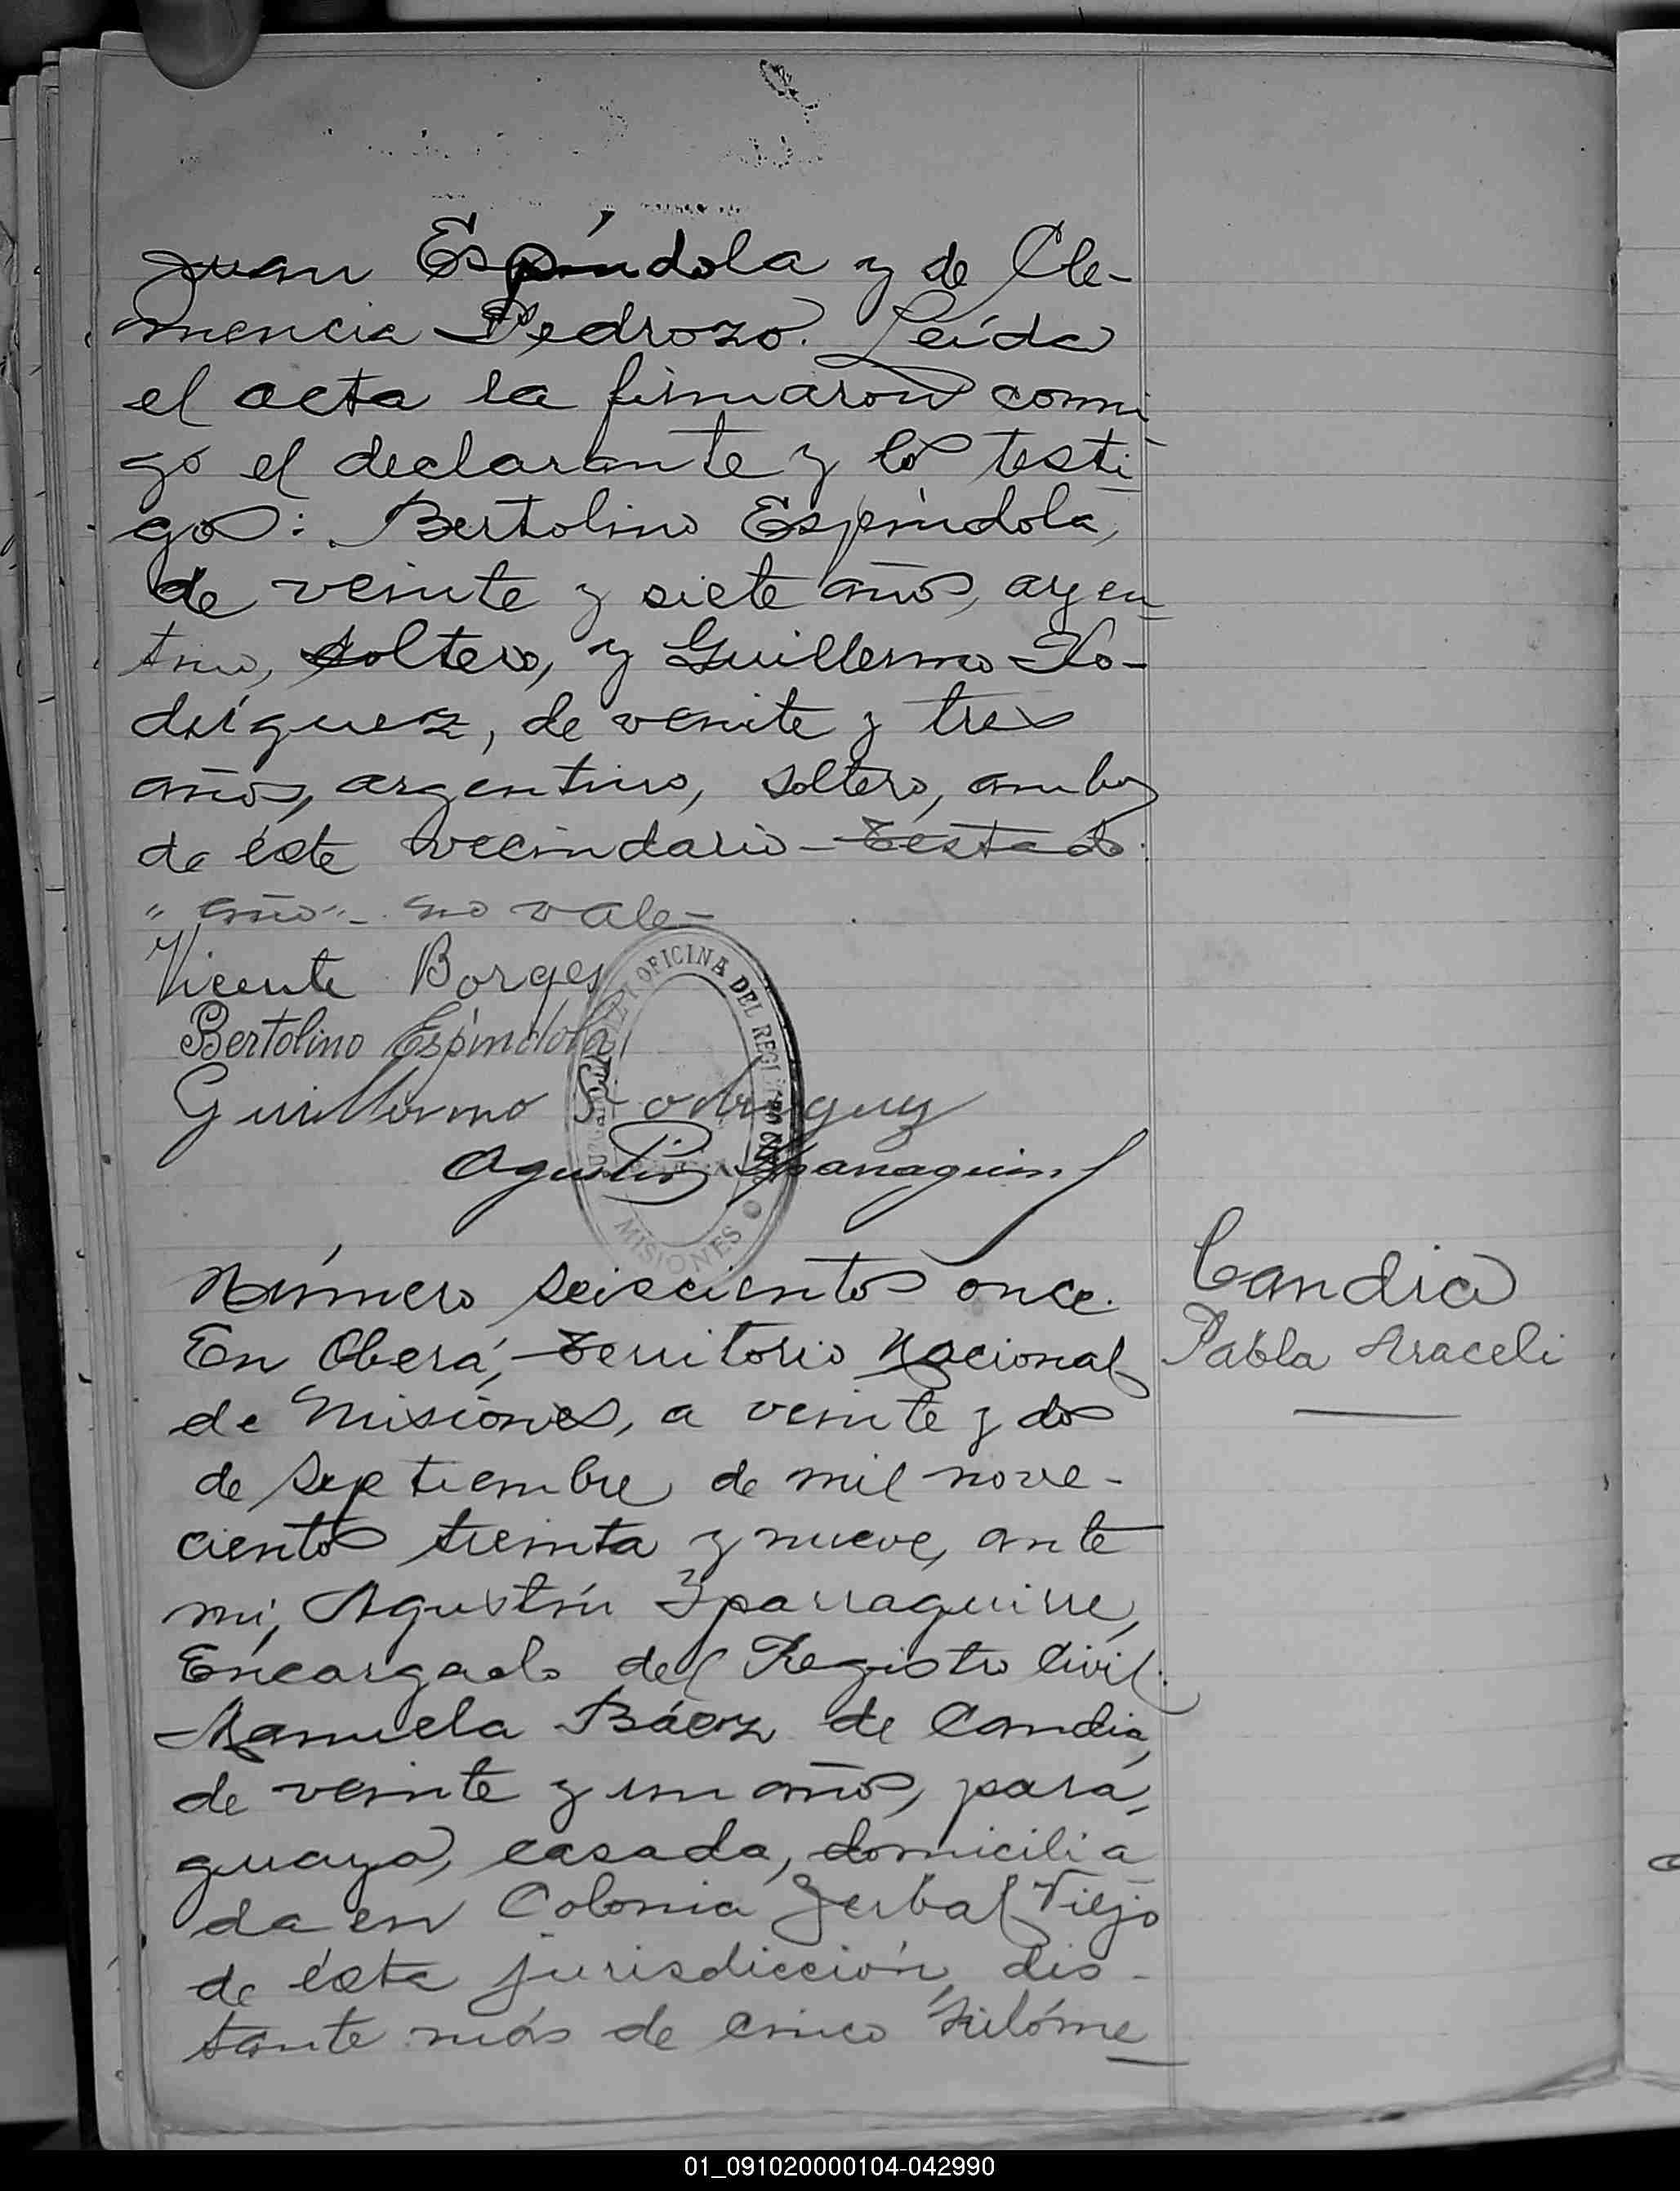 Juan Espíndola y de Cle-
mencia Pedrozo. Leída
el acta la firmaron conmi
go el declarante y los testi-
gos: Bertolino Espíndola,
de veinte y siete años, argen-
tino, soltero, y Guillermo Ro-
dríguez, de veinte y tres
años, argentino, soltero, ambos
de éste vecindario - Testado
"año" - no vale -
Vicente Borges
Bertolino Espíndola
Guillermo Rodriguez
Agustín Iparraguirre
OFICINA DEL REGISTRO CIVIL
MISIONES
Número seiscientos once.
En Oberá, Territorio Nacional
de Misiones, a veinte y dos
de septiembre de mil nove-
cientos treinta y nueve, ante
mí, Agustín Iparraguirre,
Encargado del Registro Civil.
Manuela Báez de Candia,
de veinte y un años, para-
guaya, casada, domicilia
da en Colonia Yerbal Viejo
de ésta jurisdicción, dis-
tante más de cinco kilóme-
Candia
Pabla Araceli
01_091020000104-042990